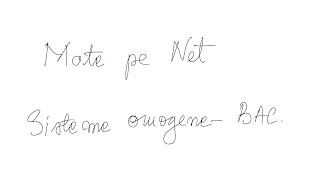 Mate pe Net
Sisteme omogene- BAC.